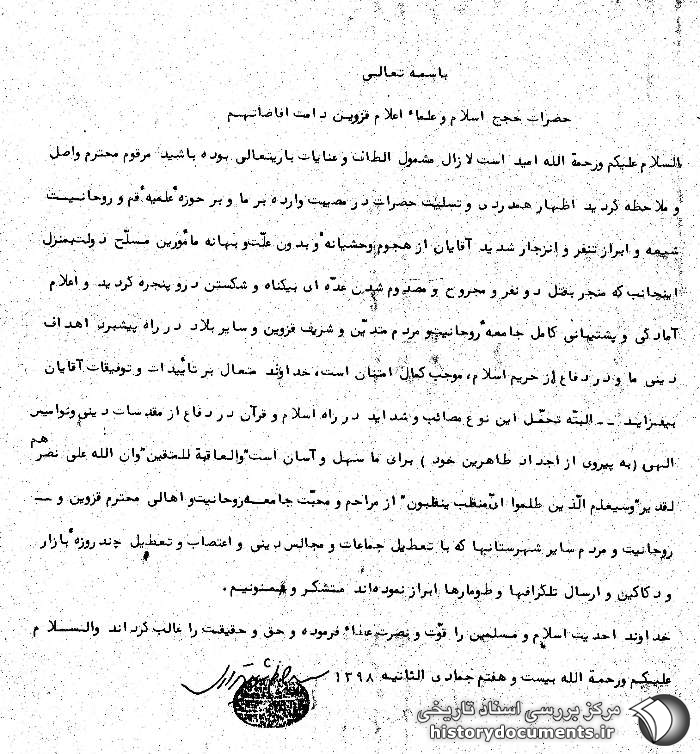 باسمه تعالی
حضرات حجج اسلام و علماء اعلام قزوین دامت افاضاتهم
السلام علیکم ورحمة الله امید است لازال مشمول الطاف و عنایات باریتعالی بوده باشید مرقوم محترم واصل
و ملاحظه گردید اظهار همدردی و تسلیت حضرات در مصیبت وارده بر ما و بر حوزه علمیه قم و روحانیت
شیعه و ابراز تنفر و انزجار شدید آقایان از هجوم وحشیانه و بدون علت و بهانه مأمورین مسلّح دولت بمنزل
اینجانب که منجر بقتل دو نفر و مجروح و مصدوم شدن عدّه ای بیگناه و شکستن در و پنجره گردید و اعلام
آمادگی و پشتیبانی کامل جامعه روحانیت و مردم متدیّن و شریف قزوین و سایر بلاد در راه پیشبرد اهداف
دینی ما و در دفاع از حریم اسلام، موجب کمال امتنان است، خداوند متعال بر تأییدات و توفیقات آقایان
بیفزاید ـ ـ البتّه تحمّل این نوع مصائب و شداید در راه اسلام و قرآن در دفاع از مقدسات دینی و نوامیس
الهی (به پیروی از اجداد طاهرین خود) برای ما سهل و آسان است "والعاقبة للمتقین" "وان الله علی نصرهم
لقدیر" "وسیعلم الّذین ظلموا ایّ منقلب ینقلبون" از مراحم و محبّت جامعه روحانیت و اهالی محترم قزوین و ـ
روحانیت و مردم سایر شهرستانها که با تعطیل جماعات و مجالس دینی و اعتصاب و تعطیل چند روزه بازار
و دکاکین و ارسال تلگرافها و طومارها ابراز نموده‌اند متشکر و ممنونیم.
خداوند احدیت اسلام و مسلمین را قوّت و نصرت عطاء فرموده و حق و حقیقت را غالب گرداند والسلام
علیکم ورحمة الله بیست و هفتم جمادی الثانیه ۱۳۹۸
مرکز بررسی اسناد تاریخی
historydocuments.ir